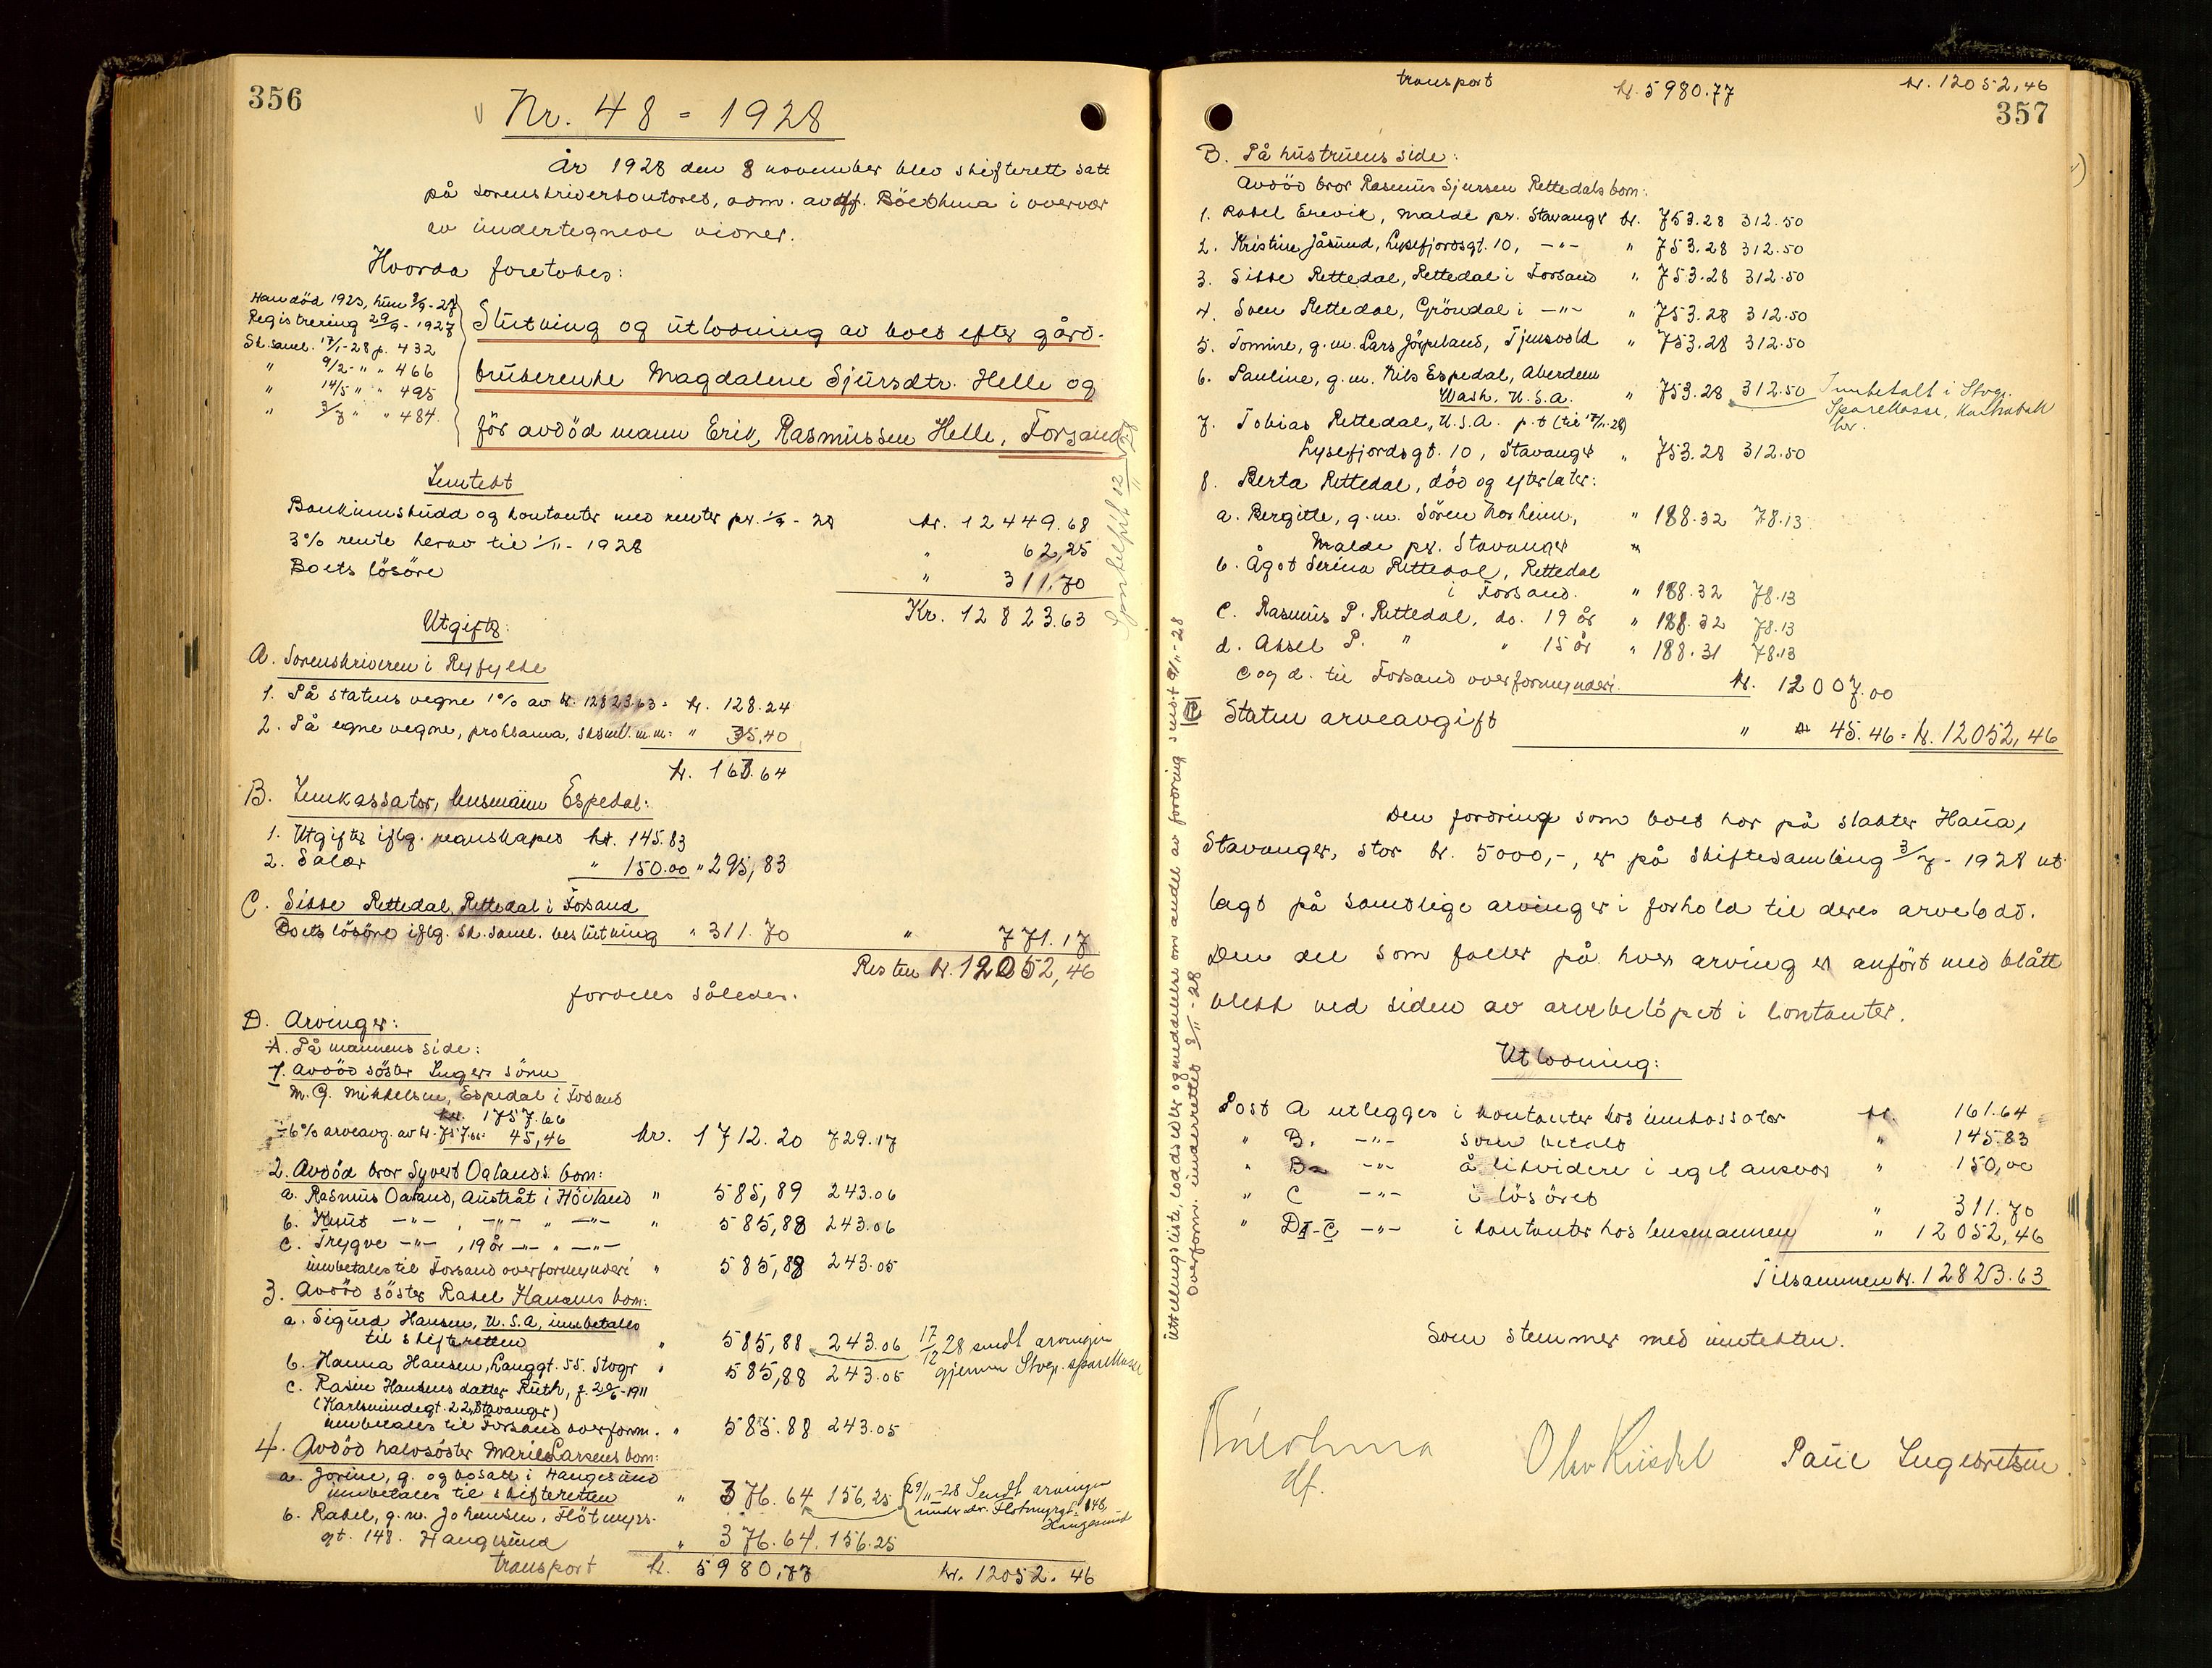 356
Nr. 48 - 1928
År 1928 den 8 november blev skifterett satt
på sorenskriverkontoret, adm. av df. Böethma i overvær
av undertegnede vidner.
Hvorda foretokes:
Han död 1923, hun 8/9-27
Registrering 29/9-1927
Sk.saml. 17/1-28 p. 432
" 9/2- " " 466
" 14/5 " " 495
" 3/7 " " 484.
Slutning og utlodning av boet efter gård-
brukerenke Magdalene Sjursdtr. Helle og
för avdöd mann Erik Rasmussen Helle, Forsand
Inntekt
Bankinnskudd og kontanter med renter pr. 1/9-28 kr. 12449.68
3% rente herav til 1/11-1928 " 62,25
Boets lösöre " 311.70
Kr. 12823.63
Utgifter:
A. Sorenskriveren i Ryfylke
1. På statens vegne 1% av kr. 12823.63 = kr. 128.24
2. På egne vegne, proklama, sksaml. m.m: " 35,40
kr. 163.64
B. Innkassator, lensmann Espedal:
1. Utgifter iflg. regnskapet kr. 145.83
2. Salær " 150.00 " 295,83
C. Sikke Rettedal, Rettedal i Forsand
Boets lösöre iflg. sk.saml. beslutning " 311.70 " 771.17
Resten kr. 12052,46
fordeles således.
D. Arvinger:
A. På mannens side:
1. Avdöd söster Ingers sönn
M. G. Mikkelsen, Espedal i Forsand
kr. 1757.66
÷ 6% arveavg. av kr. 757.66: 45,46 kr. 1712.20 729.17
2. Avdöd bror Syvert Oalands barn:
a. Rasmus Oaland, Austråt i Höiland " 585,89 243.06
b. Knut -"- , -"- " -"- " 585,88 243.06
c. Trygve -"- , 19 år -"- " -"-
innbetales til Forsand overformynderi " 585,88 243.05
3. Avdöd söster Rakel Hansens barn:
a. Sigurd Hansen, U.S.A, innbetales
til skifteretten " 585,88 243.06 17/12 28 sendt arvingen
b. Hanna Hansen, Langgt. 55. Stvgr " 585,88 243.05 gjennem Stvgr. sparekasse
c. Rasin Hansens datter Ruth, f. 20/6-1911
(Karlsmindegt. 22, Stavanger)
innbetales til Forsand overform. " 585.88 243.05
4. Avdöd halvsöster Marie Larsens barn:
a. Jorine, g. og bosatt i Haugesund
innbetales til skifteretten " 376.64 156,25 29/11-28 Sendt arvingen
under adr. Flotmyrgt. 148, Haugesund
b. Rakel, g.m. Johansen, Flötmyrs-
gt. 148. Haugesund " 376.64. 156.25
transport kr. 5980,77 kr. 12052.46
transport kr. 5980.77 kr. 12052,46
357
B. På hustruens side:
Avdöd bror Rasmus Sjursen Rettedals barn:
1. Rakel Erevik, Malde pr. Stavanger kr. 753.28 312.50
2. Kristine Jåsund, Lysefjordsgt. 10, -"- " 753.28 312.50
3. Sikke Rettedal, Rettedal i Forsand " 753.28 312.50
4. Sven Rettedal, Gröndal i -"- " 753.28 312.50
5. Tomine, g.m. Lars Jörpeland, Tjensvold " 753.28 312.50
6. Pauline, g.m. Nils Espedal, Aberdeen
Wash, U.S.A. " 753.28 312.50 Innbetalt i Stvgr.
Sparekasse, Kontrabok
her.
7. Tobias Rettedal, U.S.A. p.t (til 17/11-28)
Lysefjordsgt. 10, Stavanger " 753.28 312.50
8. Berta Rettedal, död og efterlater:
a. Bergitte, g.m. Sören Norheim, " 188.32 78.13
Malde pr. Stavanger "
b. Ågot Serina Rettedal, Rettedal
i Forsand. " 188.32 78.13
c. Rasmus P. Rettedal, do. 19 år " 188.32 78.13
d. Aksel P. " " 15 år " 188.31 78.13
c og d. til Forsand overformynderi. kr. 12007.00
C Staten arveavgift " 45.46 = kr. 12052,46
Den fordring som boet har på slakter Haua,
Stavanger, stor kr. 5000,-, er på skiftesamling 3/7-1928 ut-
lagt på samtlige arvinger i forhold til deres arvelodd.
Den del som faller på hver arving er anfört med blått
blekk ved siden av arvebelöpet i kontanter.
Utlodning:
Post A utlegges i kontanter hos innkassator kr. 161.64
" B. -"- som betalt " 145.83
" B -"- å likvidere i eget ansvar " 150,00
" C -"- i lösöret " 311.70
" DI-C -"- i kontanter hos lensmannen " 12052,46
Tilsammen kr. 12823.63
Som stemmer med inntekten.
df.
Olav Kiisdal
Paul Ingebretsen
Uttellingsliste, loddsedler og meddelelse om andel av fordring sendt 9/11-28
Overform. underrettet 8/11-28